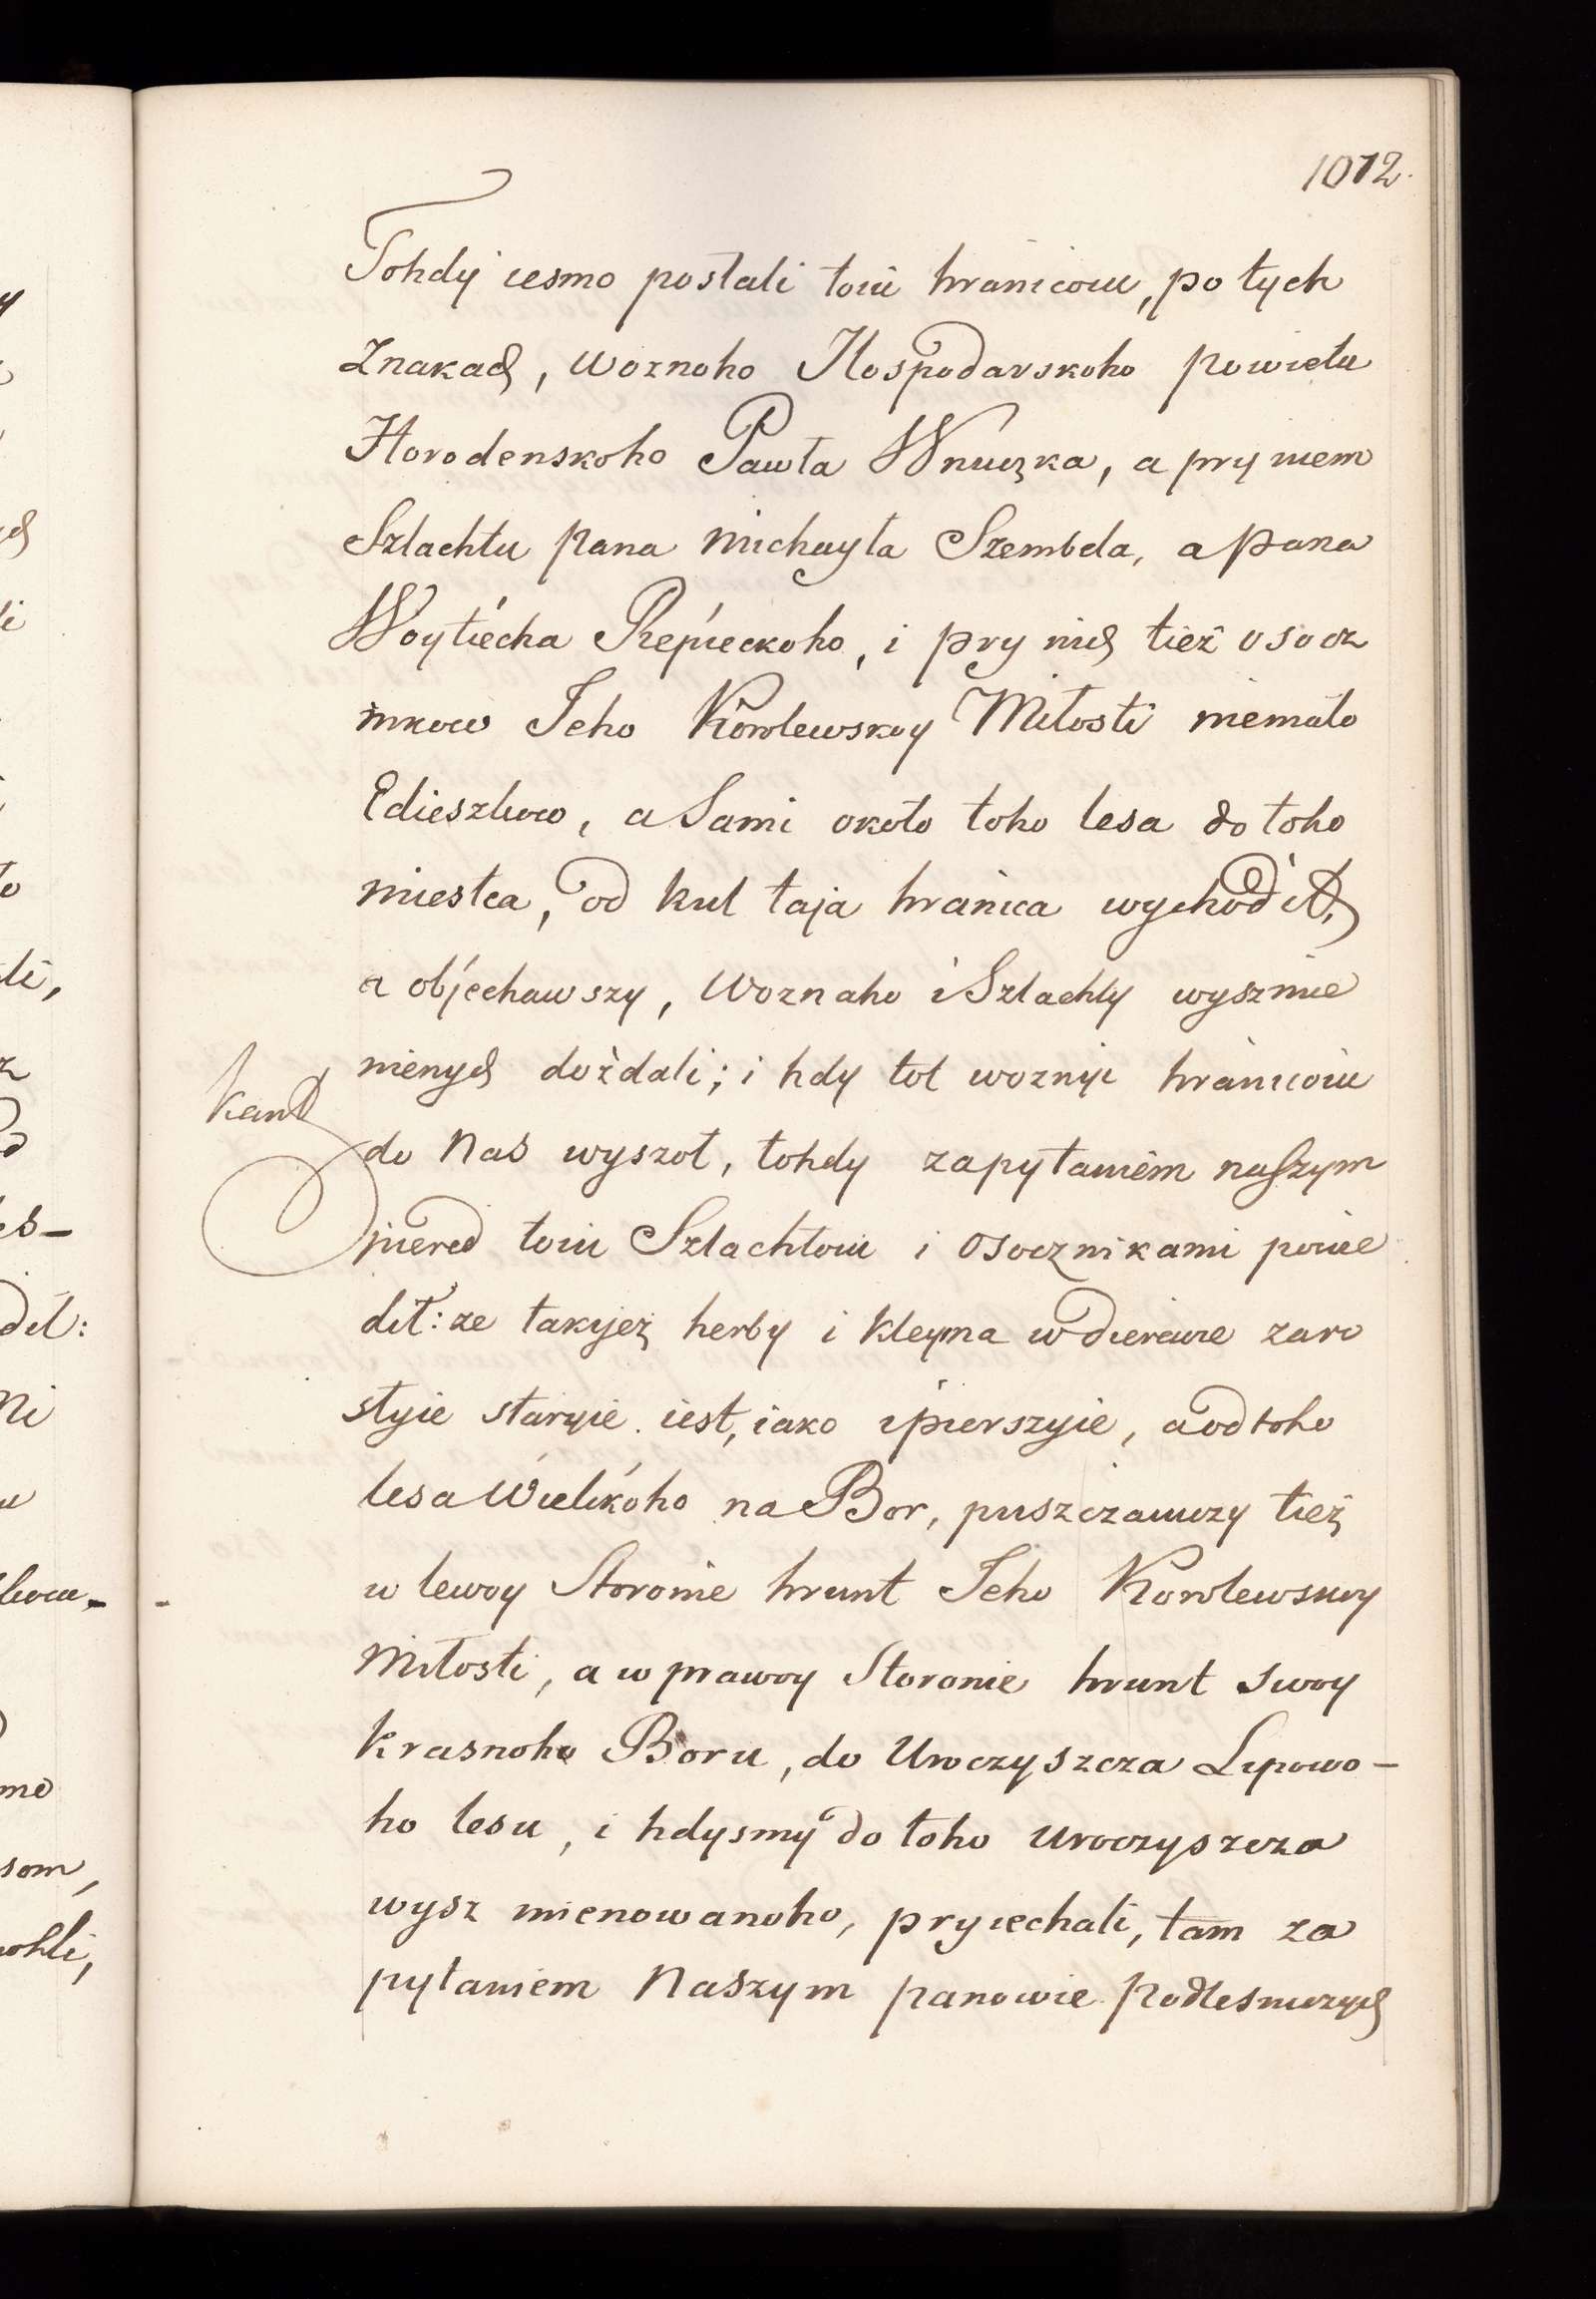 1012.
Tohdy iesmo posłali toiu hranicoiu, po tych
Znakach, Woznoho Hospodarskoho powietu
Horodenskoho Pawła Wnuczka, a pry niem
Szlachtu pana Michayła Szembela, a pana
Woytiecha Rzepieckoho, i pry nich tieź osocz
nikow Jeho Korolewskoy Miłosti niemało
Edieszkow, a Sami około toho lesa do toho
miestca, od kul taja hranica wychodit,
a objechawszy, Woznaho i Szlachty wyszmie
nienych doźdali; i hdy tot woznyi hranicoiu
kand
do Nas wyszoł, tohdy zapytaniem naszym
piered toiu Szlachtoiu i osocznikami powie
dił: ze takijeż herby i kleyma w dierewie zaro
styie staryie iest, iako i pierszyie, a od toho
lesa Wielikoho na Bor, puszczawszy tieź
w lewoy Storonie hrunt Jeho Korolewskoy
Miłosti, a w prawoy Storonie hrunt swoy
Krasnoho Boru, do Uroczyszcza Lipowo-
ho lesu, i hdysmy do toho uroczyszcza
wysz mienowanoho, pryiechali, tam za
pytaniem Naszym panowie Podlesniczych